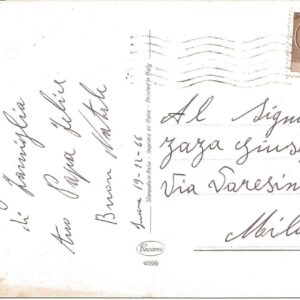 Buon Natale
Anno Papa felice
di Famiglia
19-12-66
Stampato in Italia - Imprimé en Italie - Printed in Italy
Cecami
4699
Al Signo
Zaza Giuse
Via Varesin
Mila